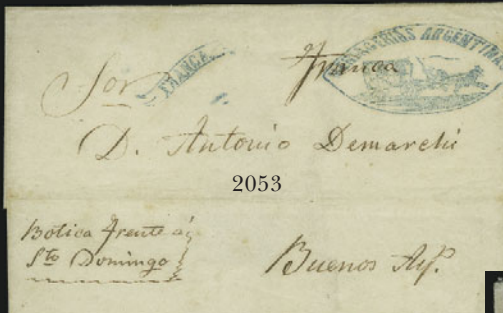 MENSAGERIAS ARGENTINAS
FRANCA
Franca
Sor
D. Antonio Demarchi
2053
Botica frente á
Sto Domingo
Buenos Ays.